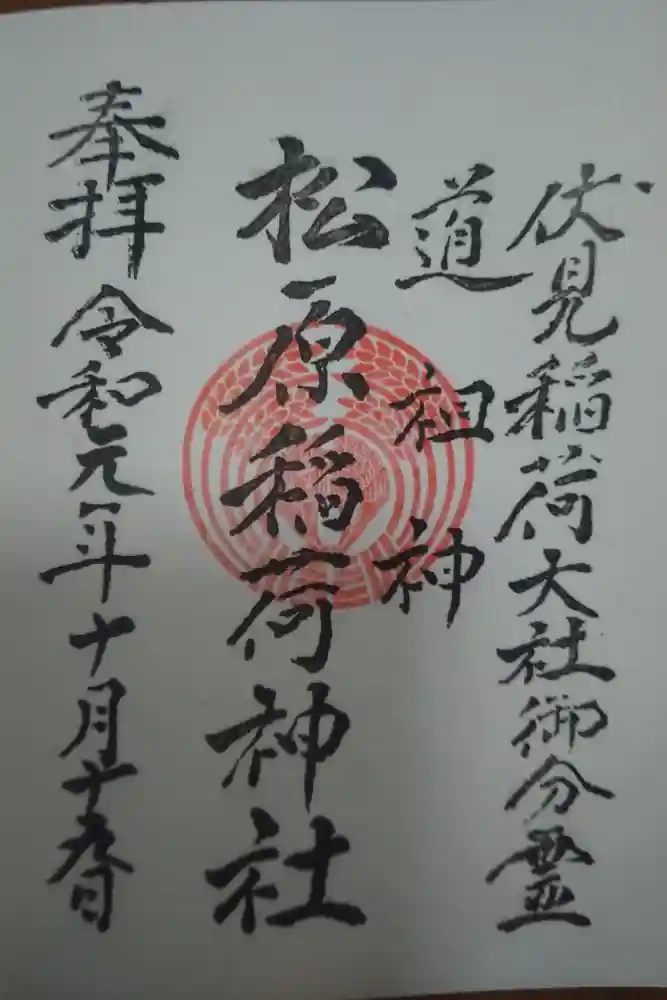 伏見稲荷大社御分霊
道祖神
松原稲荷神社
奉拝 令和元年十月十五日